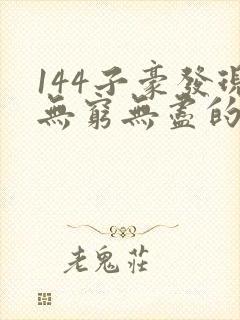 144子豪發現
無窮無盡的
老鬼莊